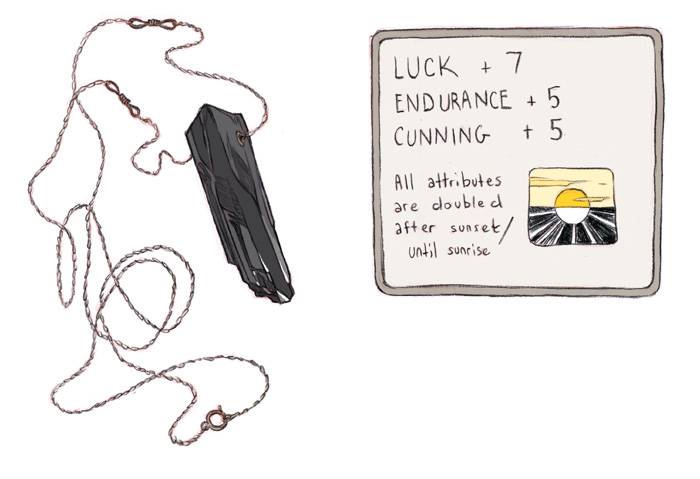 LUCK + 7
ENDURANCE + 5
CUNNING + 5
All attributes
are doubled
after sunset/
until sunrise